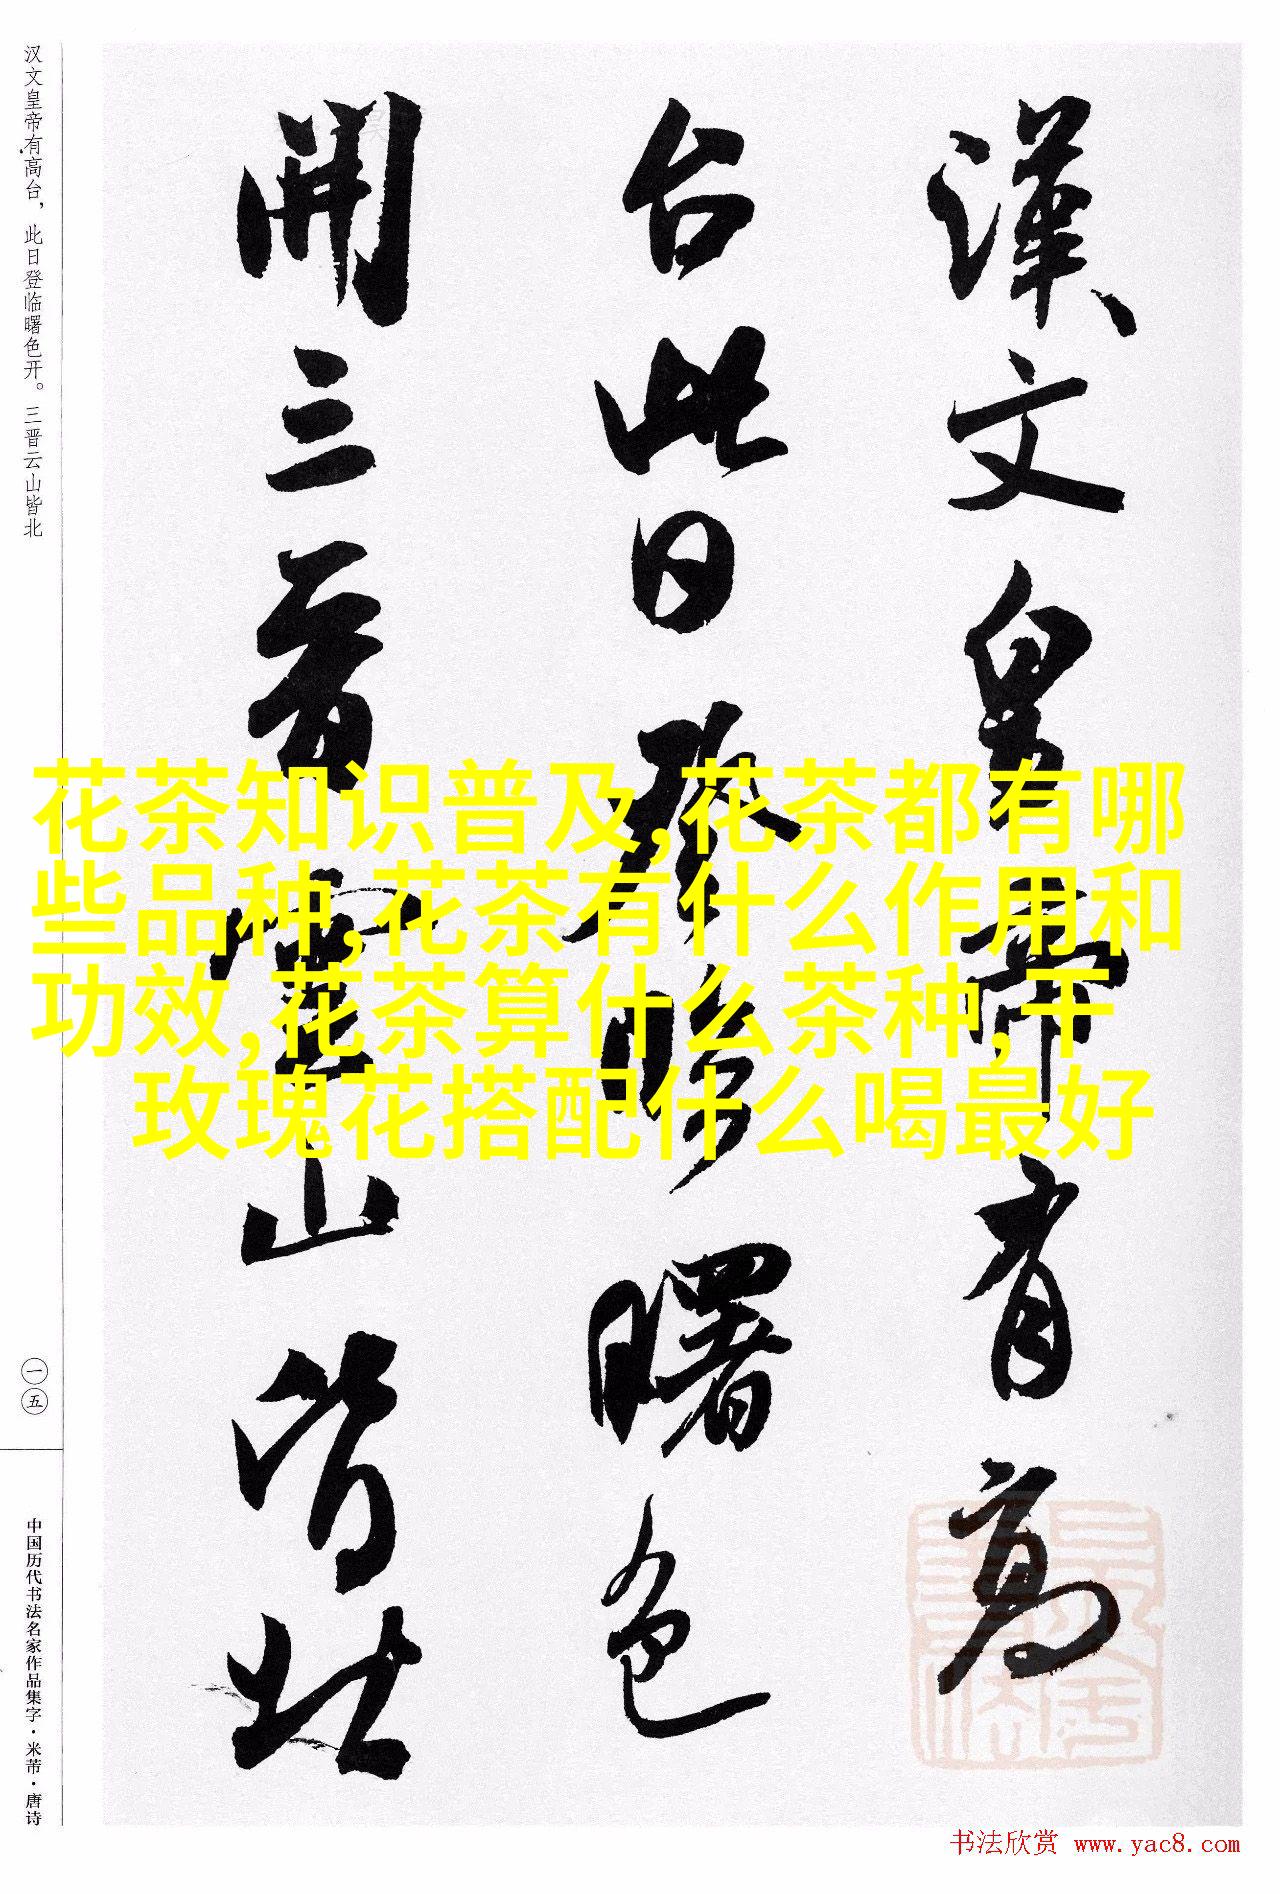 漢文皇帝有高
台此日登臨曙色
開三晉雲山皆北
汉文皇帝有高台，此日登临曙色开。三晋云山皆北
一五
中国历代书法名家作品集字·米芾·唐诗
花茶知识普及,花茶都有哪
些品种,花茶有什么作用和
功效,花茶算什么茶种,干
玫瑰花搭配什么喝最好
书法欣赏 www.yac8.com